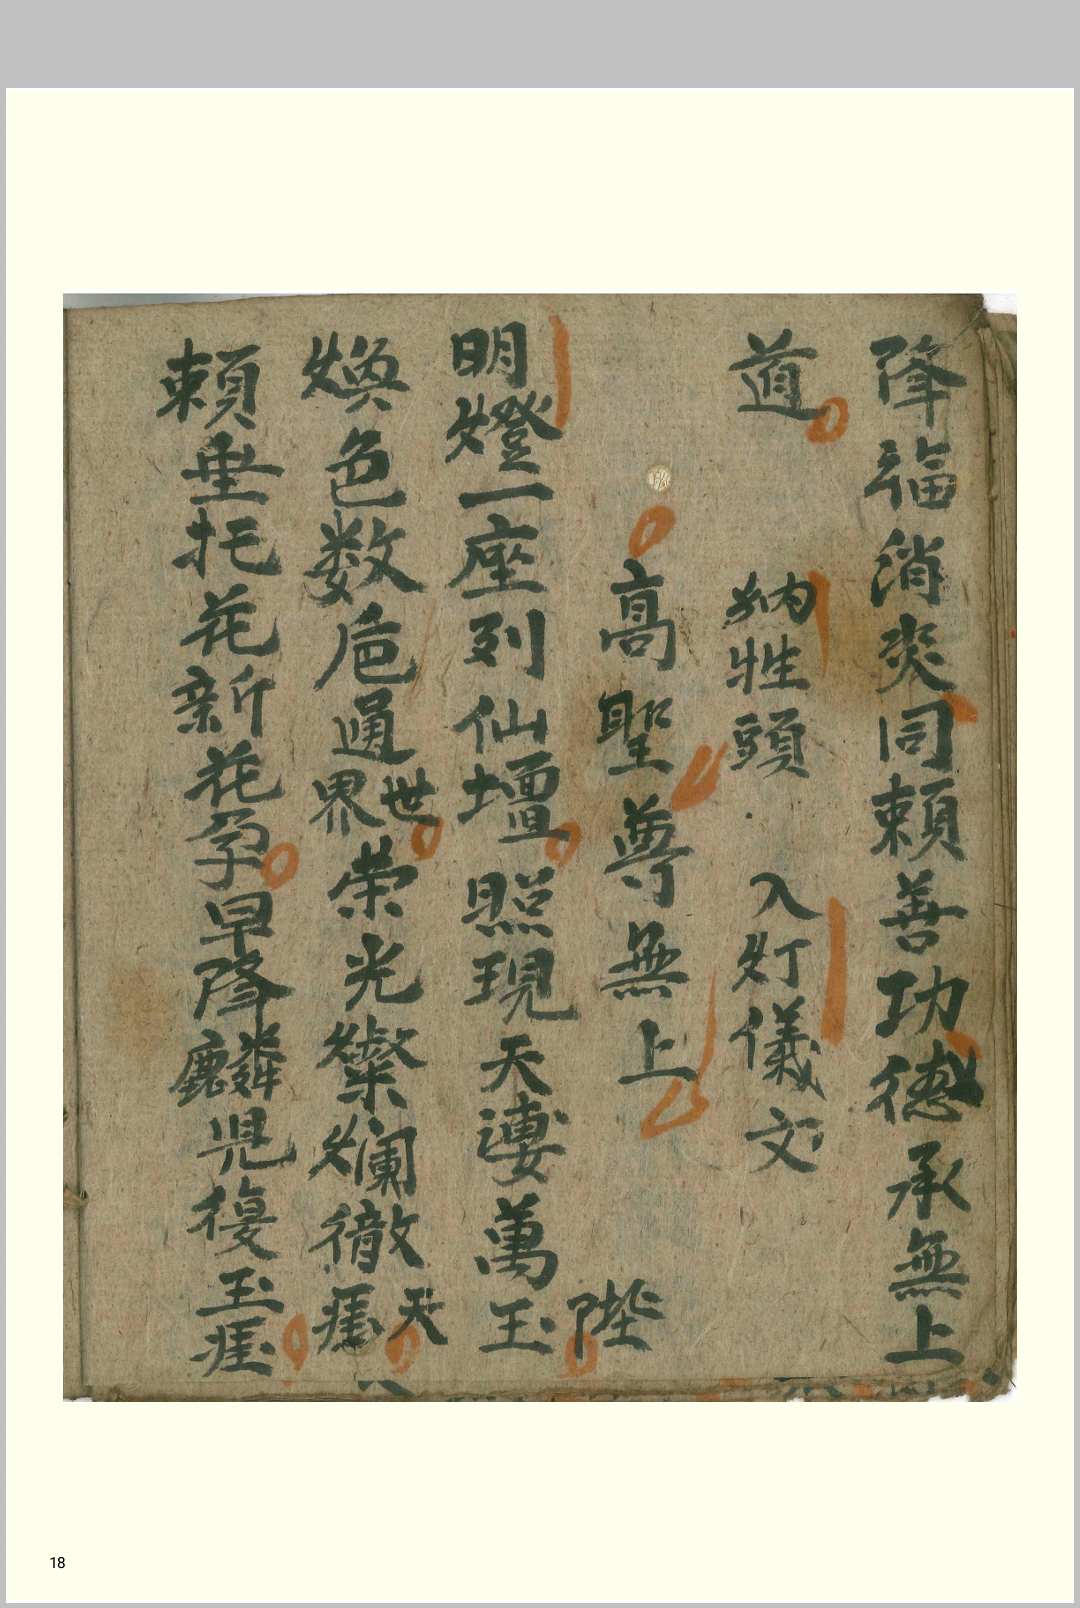 降福消灾同賴善功德承無上
道 納牲頭 入灯儀文
高聖尊無上
明燈一座列仙壇照現天 萬玉陛
煥色数 通世界荣光燦爛徹天
賴垂 花新花孕早降麟児 玉
18